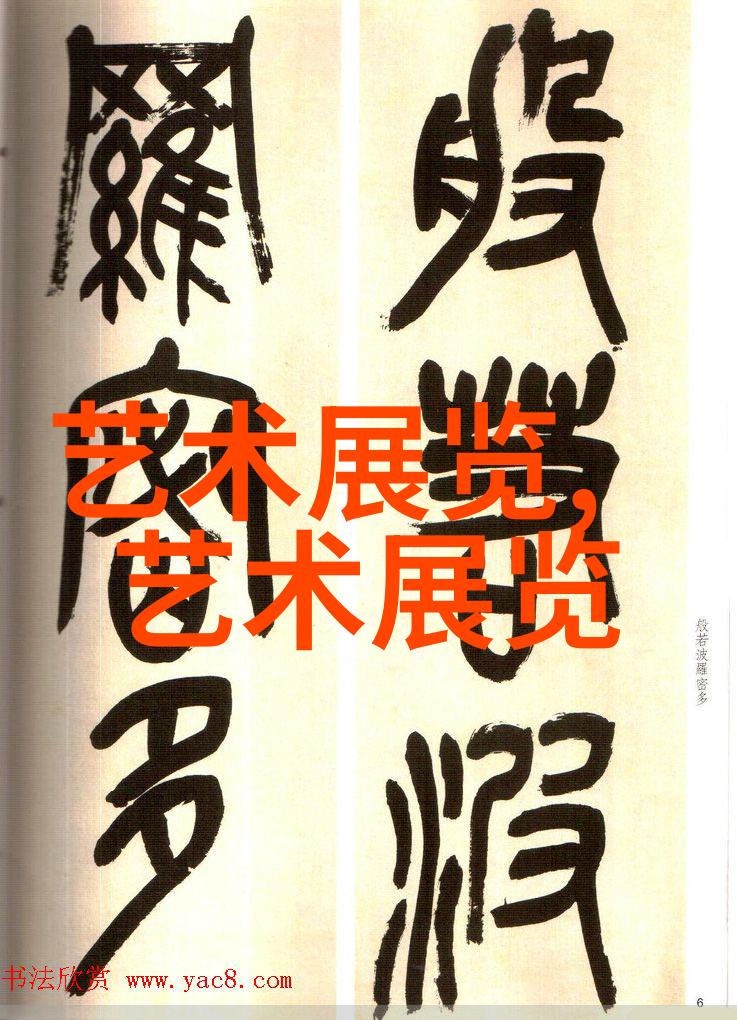 般若波
羅密多
艺术展览,
艺术展览
般若波羅密多
书法欣赏 www.yac8.com
6